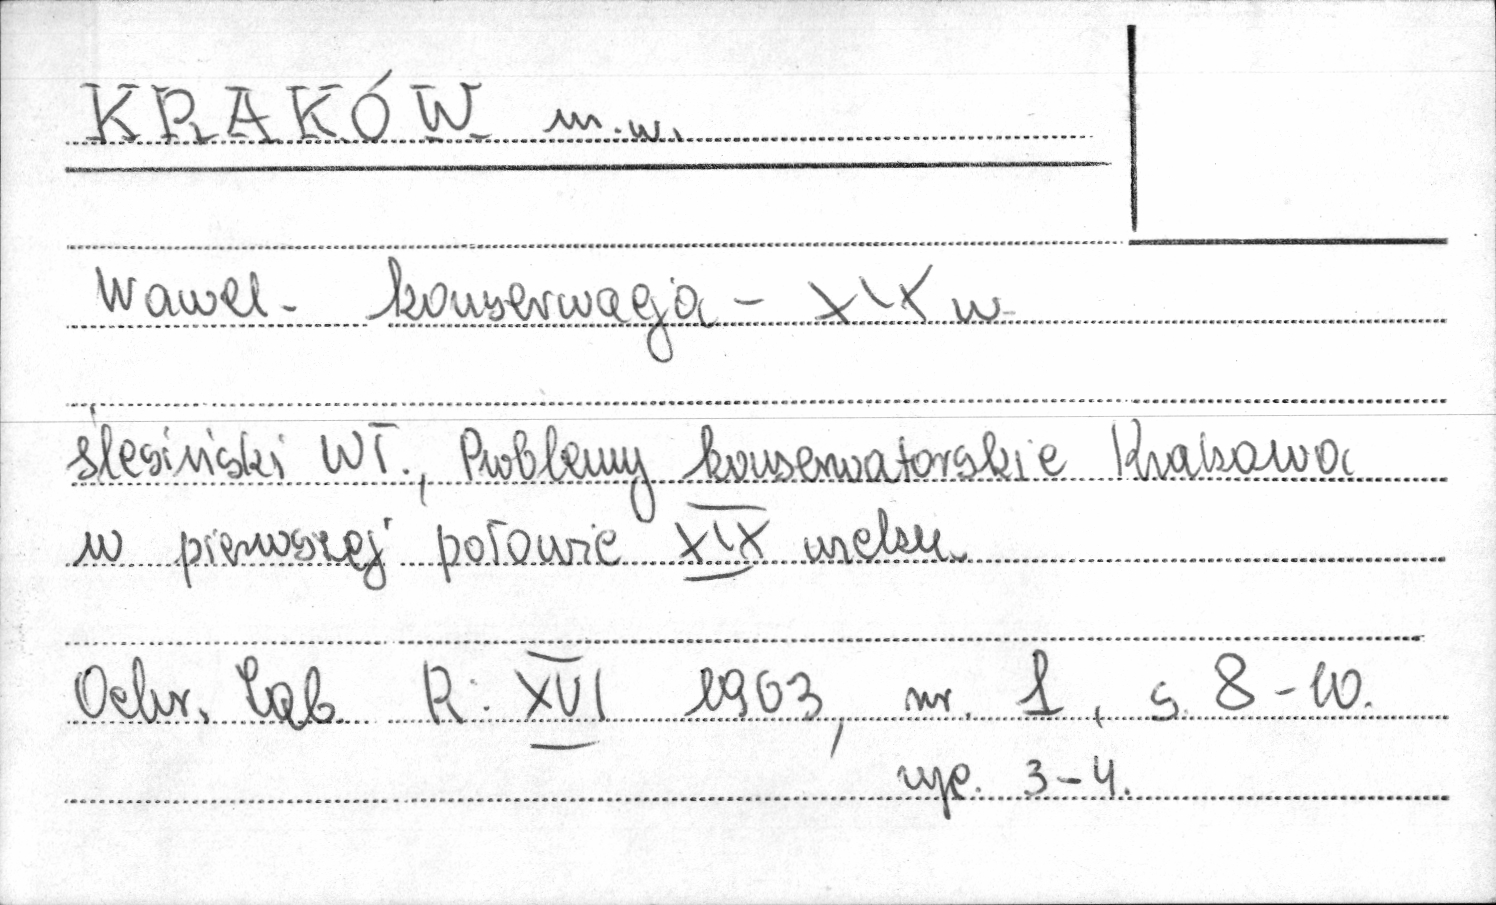 KRAKÓW m.w.
Wawel - konserwacja - XIX w.
Ślesiński Wł., Problemy konserwatorskie Krakowa
w pierwszej połowie XIX wieku
Ochr. Zab. R: XVI 1963, nr. 1, s. 8-10.
ryc. 3-4.